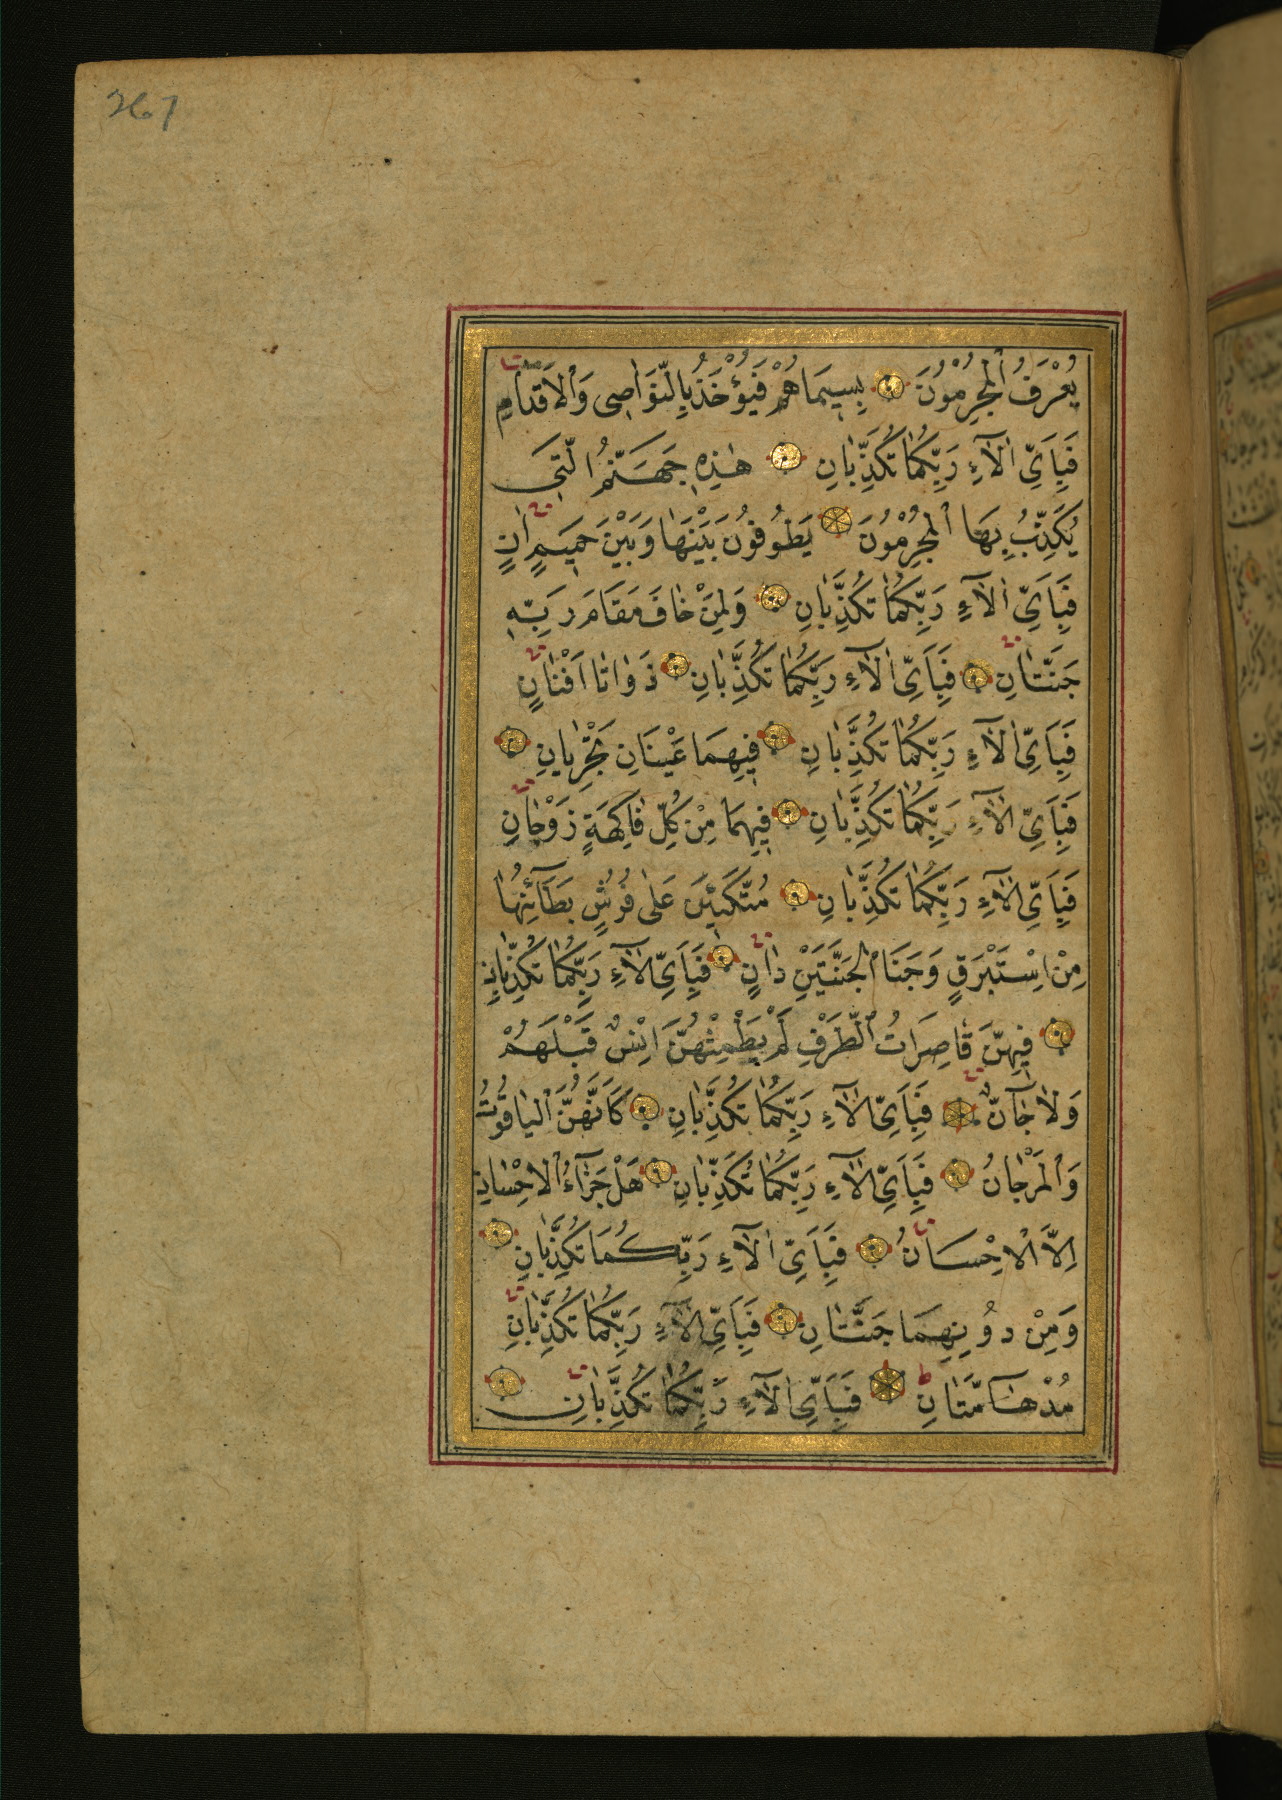 267
يُعْرَفُ الْمُجْرِمُونَ بِسِيمَاهُمْ فَيُؤْخَذُ بِالنَّوَاصِى وَالْاَقْدَامِ
فَبِاَىِّ اٰلَآءِ رَبِّكُمَا تُكَذِّبَانِ هٰذِهِ جَهَنَّمُ الَّتِى
يُكَذِّبُ بِهَا الْمُجْرِمُونَ يَطُوفُونَ بَيْنَهَا وَبَيْنَ حَمِيمٍ اٰنٍ
فَبِاَىِّ اٰلَآءِ رَبِّكُمَا تُكَذِّبَانِ وَلِمَنْ خَافَ مَقَامَ رَبِّهِ
جَنَّتَانِ فَبِاَىِّ اٰلَآءِ رَبِّكُمَا تُكَذِّبَانِ ذَوَاتَا اَفْنَانٍ
فَبِاَىِّ اٰلَآءِ رَبِّكُمَا تُكَذِّبَانِ فِيهِمَا عَيْنَانِ تَجْرِيَانِ
فَبِاَىِّ اٰلَآءِ رَبِّكُمَا تُكَذِّبَانِ فِيهِمَا مِنْ كُلِّ فَاكِهَةٍ زَوْجَانِ
فَبِاَىِّ اٰلَآءِ رَبِّكُمَا تُكَذِّبَانِ مُتَّكِـِٔينَ عَلٰى فُرُشٍ بَطَآئِنُهَا
مِنْ اِسْتَبْرَقٍ وَجَنَا الْجَنَّتَيْنِ دَانٍ فَبِاَىِّ اٰلَآءِ رَبِّكُمَا تُكَذِّبَانِ
فِيهِنَّ قَاصِرَاتُ الطَّرْفِ لَمْ يَطْمِثْهُنَّ اِنْسٌ قَبْلَهُمْ
وَلَا جَآنٌّ فَبِاَىِّ اٰلَآءِ رَبِّكُمَا تُكَذِّبَانِ كَاَنَّهُنَّ الْيَاقُوتُ
وَالْمَرْجَانُ فَبِاَىِّ اٰلَآءِ رَبِّكُمَا تُكَذِّبَانِ هَلْ جَزَآءُ الْاِحْسَانِ
اِلَّا الْاِحْسَانُ فَبِاَىِّ اٰلَآءِ رَبِّكُمَا تُكَذِّبَانِ
وَمِنْ دُونِهِمَا جَنَّتَانِ فَبِاَىِّ اٰلَآءِ رَبِّكُمَا تُكَذِّبَانِ
مُدْهَآمَّتَانِ فَبِاَىِّ اٰلَآءِ رَبِّكُمَا تُكَذِّبَانِ